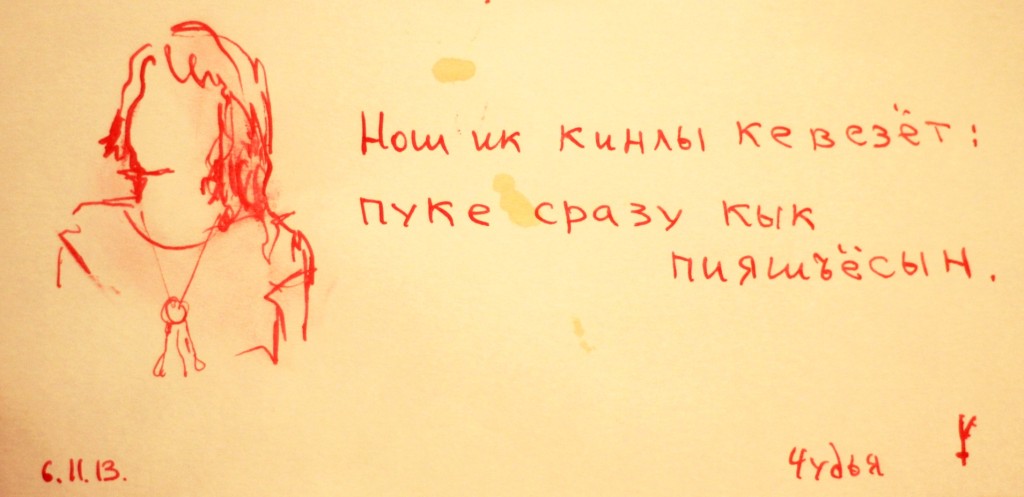 Нош ик кинлы кевезёт:
пуке сразу кык
пияшъёсын.
6.11.13.
Чудья